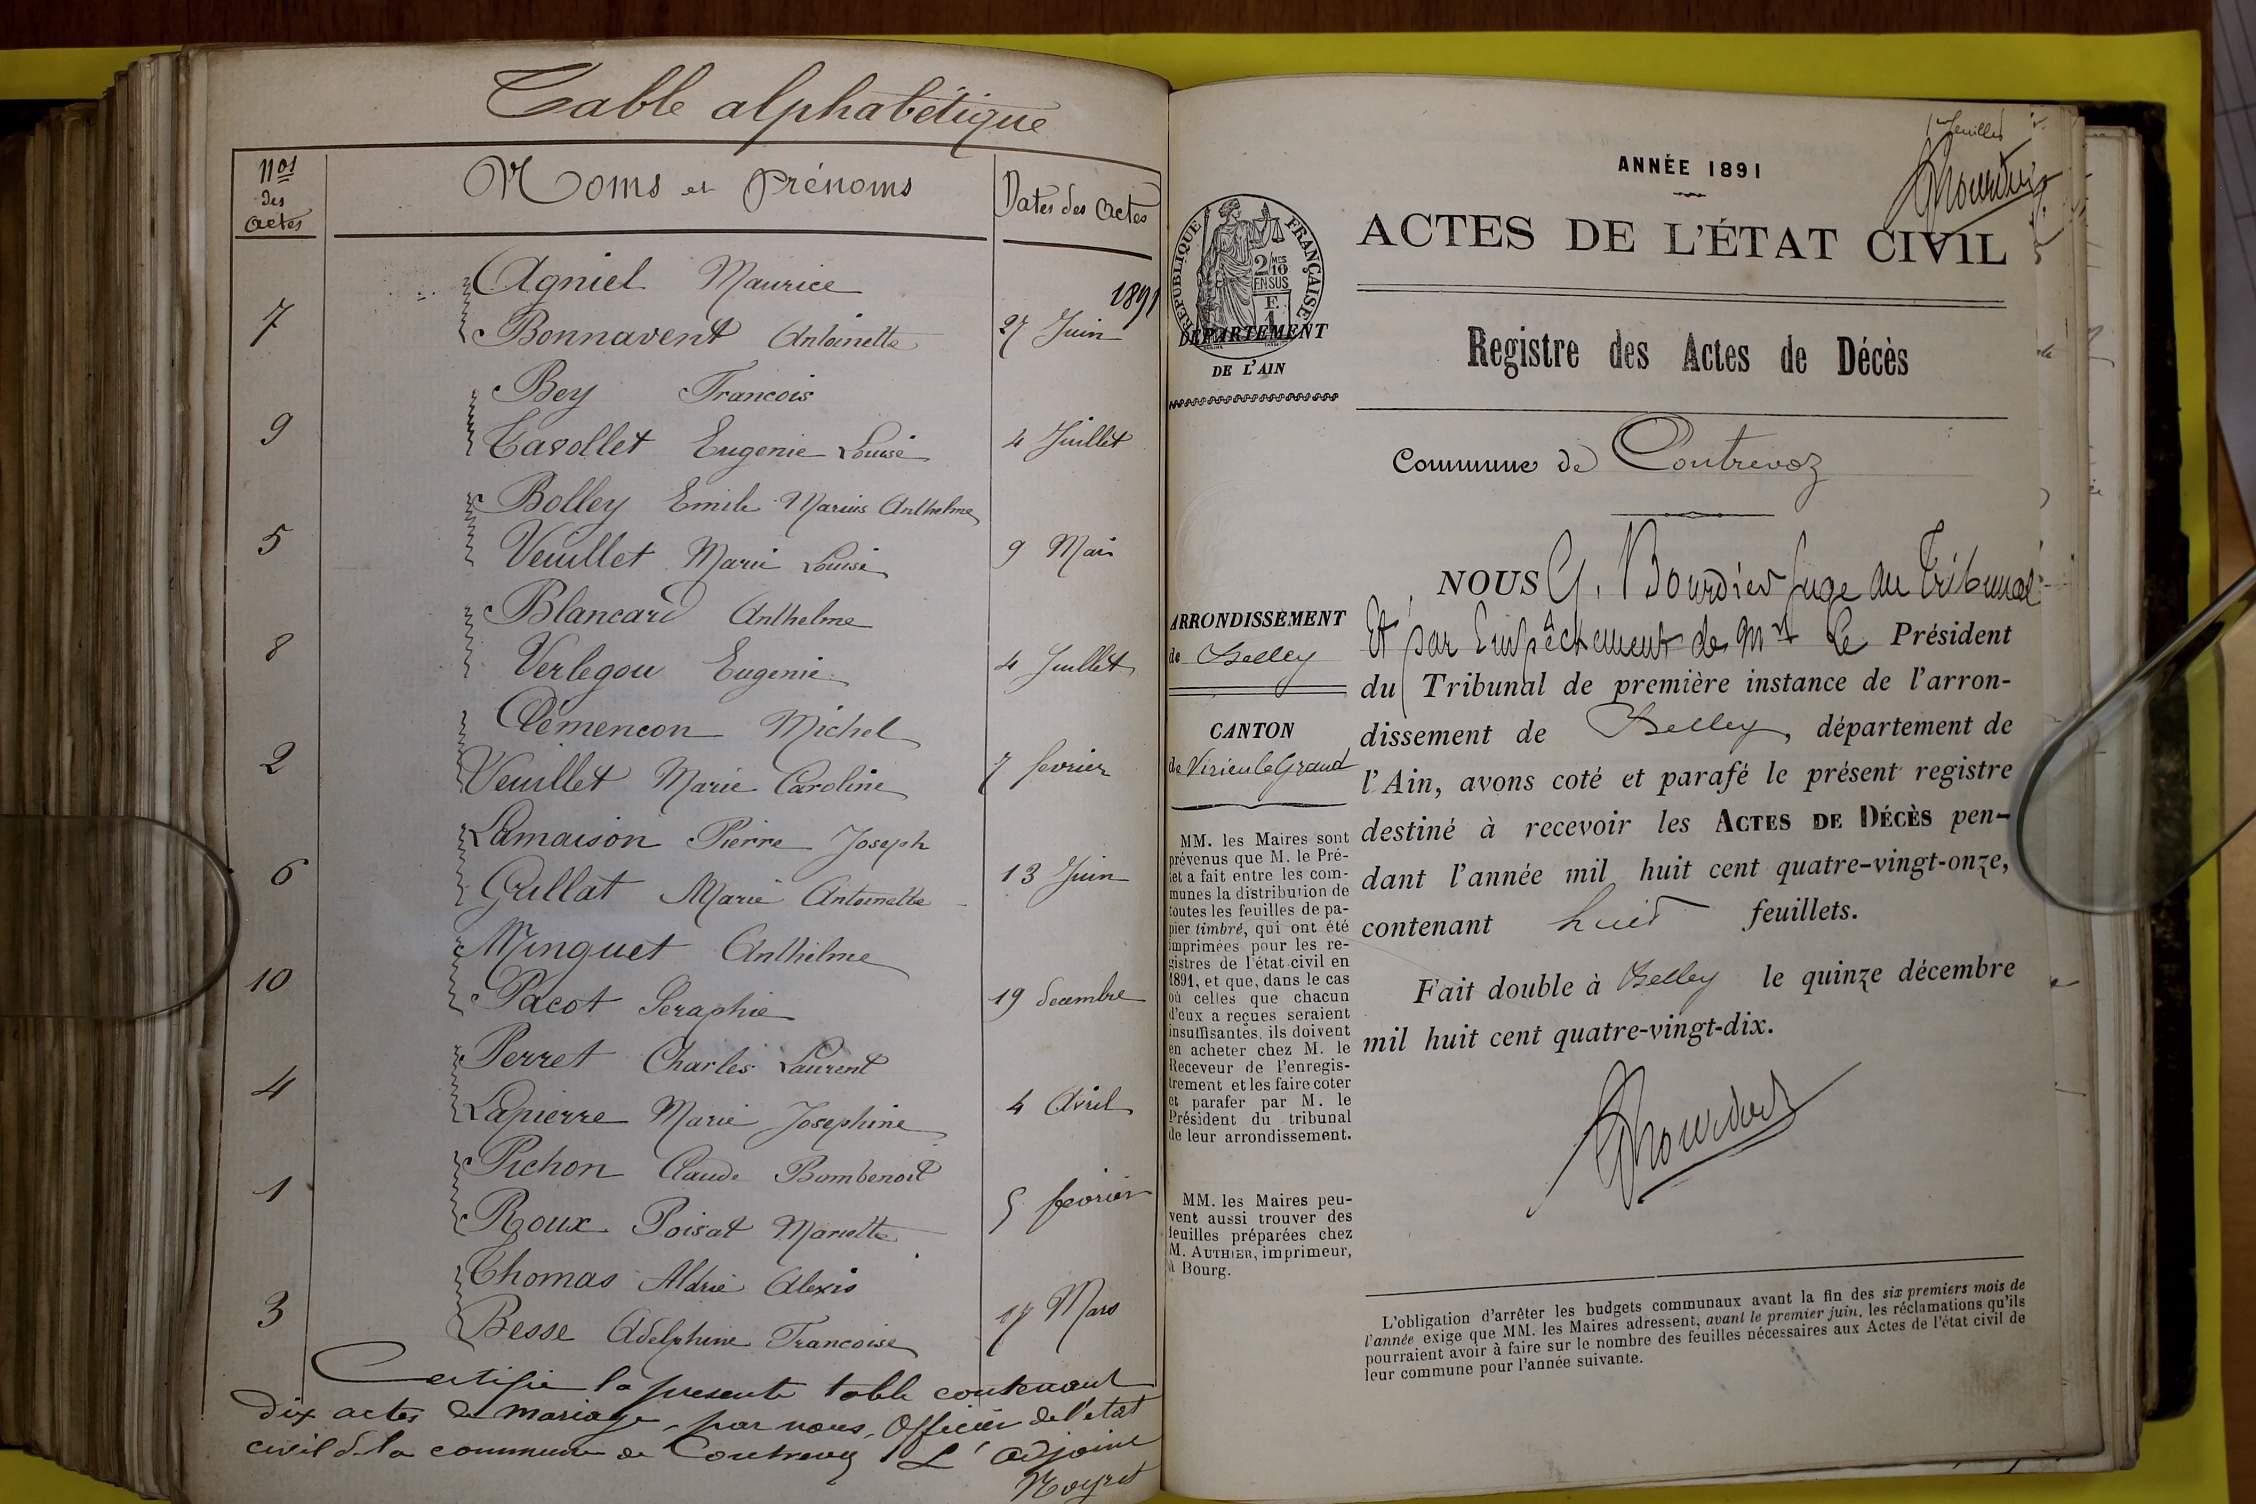 Table alphabétique
Nos des actes
Noms et Prénoms
Dates des actes
1891
Agniel Maurice
7 Bonnavent Antoinette 27 Juin
Bey Francois
9 Tavollet Eugenie Louise 4 Juillet
Bolley Emile Marius Anthelme
5 Veuillet Marie Louise 9 Mai
Blancard Anthelme
8 Verlegou Eugenie 4 Juillet
Clémencon Michel
2 Veuillet Marie Caroline 7 fevrier
Lamaison Pierre Joseph
6 Gullat Marie Antoinette 13 Juin
Minguet Anthelme
10 Pacot Seraphie 19 decembre
Perret Charles Laurent
4 Lapierre Marie Josephine 4 Avril
Pichon Claude Bombenoit
1 Roux Poisat Mariette 5 fevrier
Thomas Aldrie Alexis
3 Besse Adelphine Francoise 17 Mars
Certifie la presente table contenant
dix actes de mariage, par nous, Officier de l'etat
civil de la commune de Contrevoz L'adjoint
Noyret
1er feuillet
ANNÉE 1891
ACTES DE L'ÉTAT CIVIL
RÉPUBLIQUE FRANÇAISE
2/10 MES
EN SUS
F.
1
DÉPARTEMENT
DE L'AIN
Registre des Actes de Décès
Commune de Contrevoz
ARRONDISSEMENT
de Belley
CANTON
de Virieu le Grand
MM. les Maires sont
prévenus que M. le Pré-
fet a fait entre les com-
munes la distribution de
toutes les feuilles de pa-
pier timbré, qui ont été
imprimées pour les re-
gistres de l'état civil en
1891, et que, dans le cas
où celles que chacun
d'eux a reçues seraient
insuffisantes, ils doivent
en acheter chez M. le
Receveur de l'enregis-
trement et les faire coter
et parafer par M. le
Président du tribunal
de leur arrondissement.
MM. les Maires peu-
vent aussi trouver des
feuilles préparées chez
M. AUTHIER, imprimeur,
à Bourg.
NOUS G. Bourdier Juge au Tribunal
Et par Empêchement de Mr Le Président
du Tribunal de première instance de l'arron-
dissement de Belley, département de
l'Ain, avons coté et parafé le présent registre
destiné à recevoir les ACTES DE DÉCÈS pen-
dant l'année mil huit cent quatre-vingt-onze,
contenant huit feuillets.
Fait double à Belley le quinze décembre
mil huit cent quatre-vingt-dix.
L'obligation d'arrêter les budgets communaux avant la fin des six premiers mois de
l'année exige que MM. les Maires adressent, avant le premier juin, les réclamations qu'ils
pourraient avoir à faire sur le nombre des feuilles nécessaires aux Actes de l'état civil de
leur commune pour l'année suivante.